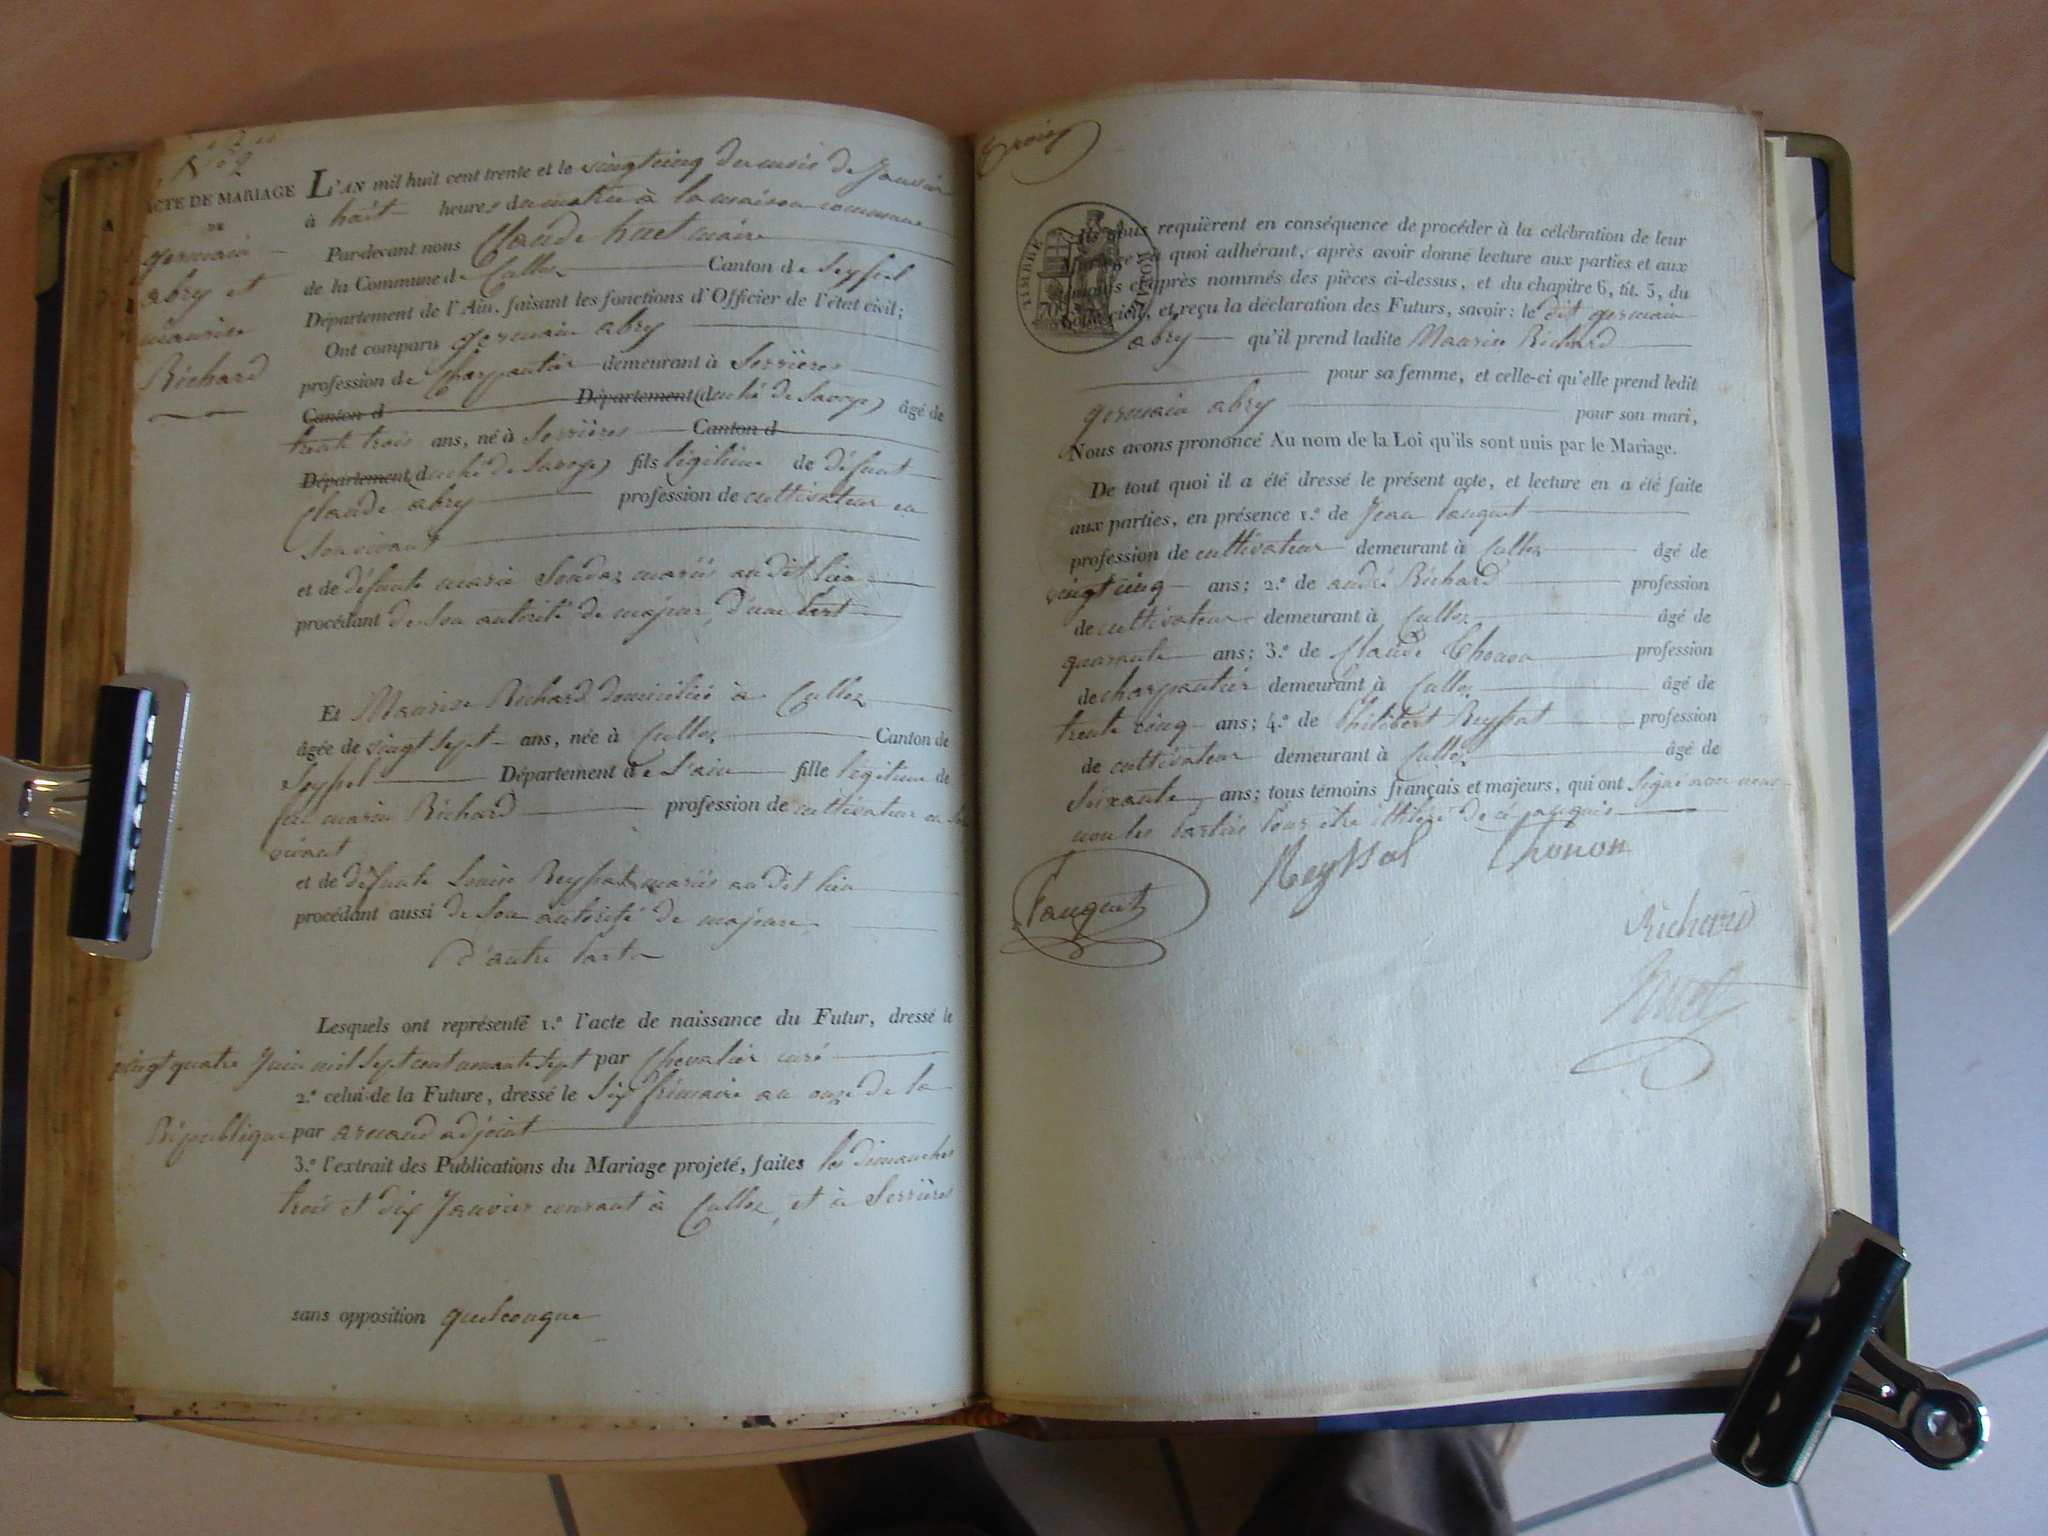 N.º 2
ACTE DE MARIAGE
DE
germain
abry et
maurise
Richard
L'AN mil huit cent trente et le vingt cinq du mois de Janvier
à huit heures du matin à la maison commune
Par-devant nous Claude huet maire
de la Commune de Culloz Canton de Seyssel
Département de l'Ain, faisant les fonctions d'Officier de l'état civil;
Ont comparu germain abry
profession de charpentier demeurant à Serrières
Canton d Département (duché de Savoye) âgé de
trente trois ans, né à Serrières Canton d
Département, duché de Savoye) fils légitime de défunt
Claude abry profession de cultivateur en
son vivant
et de défunte marie mariés au dit lieu
procédant de son autorité de majeur, d'une part
Et Maurise Richard domiciliée à Culloz
âgée de vingt sept ans, née à Culloz Canton de
Seyssel Département de l'ain fille légitime de
feu marin Richard profession de cultivateur en son
vivant
et de défunte Louise Reyssat mariés au dit lieu
procédant aussi de son autorité de majeure
d'autre part
Lesquels ont représenté 1.º l'acte de naissance du Futur, dressé le
vingt quatre Juin mil sept cent nonante sept par Chevalier curé
2.º celui de la Future, dressé le six frimaire an onze de la
République par adjoint
3.º l'extrait des Publications du Mariage projeté, faites les dimanches
trois et dix Janvier courant à Culloz, et à Serrières
sans opposition quelconque
TIMBRE ROYAL
Ils nous requièrent en conséquence de procéder à la célébration de leur
Mariage, à quoi adhérant, après avoir donné lecture aux parties et aux
témoins ci-après nommés des pièces ci-dessus, et du chapitre 6, tit. 5, du
Code civil, et reçu la déclaration des Futurs, savoir: le dit germain
abry qu'il prend ladite Maurise Richard
pour sa femme, et celle-ci qu'elle prend ledit
germain abry pour son mari,
Nous avons prononcé Au nom de la Loi qu'ils sont unis par le Mariage.
De tout quoi il a été dressé le présent acte, et lecture en a été faite
aux parties, en présence 1.º de Jean Fauquet
profession de cultivateur demeurant à Culloz âgé de
vingt cinq ans; 2.º de andré Richard profession
de cultivateur demeurant à Culloz âgé de
quarante ans; 3.º de Claude Thonon profession
de charpentier demeurant à Culloz âgé de
trente cinq ans; 4.º de Philibert Reyssat profession
de cultivateur demeurant à Culloz âgé de
Soixante ans; tous témoins français et majeurs, qui ont signé avec nous
non les parties pour être illitéré de ce enquis
Fauquet
Reyssat
Thonon
Richard
huet